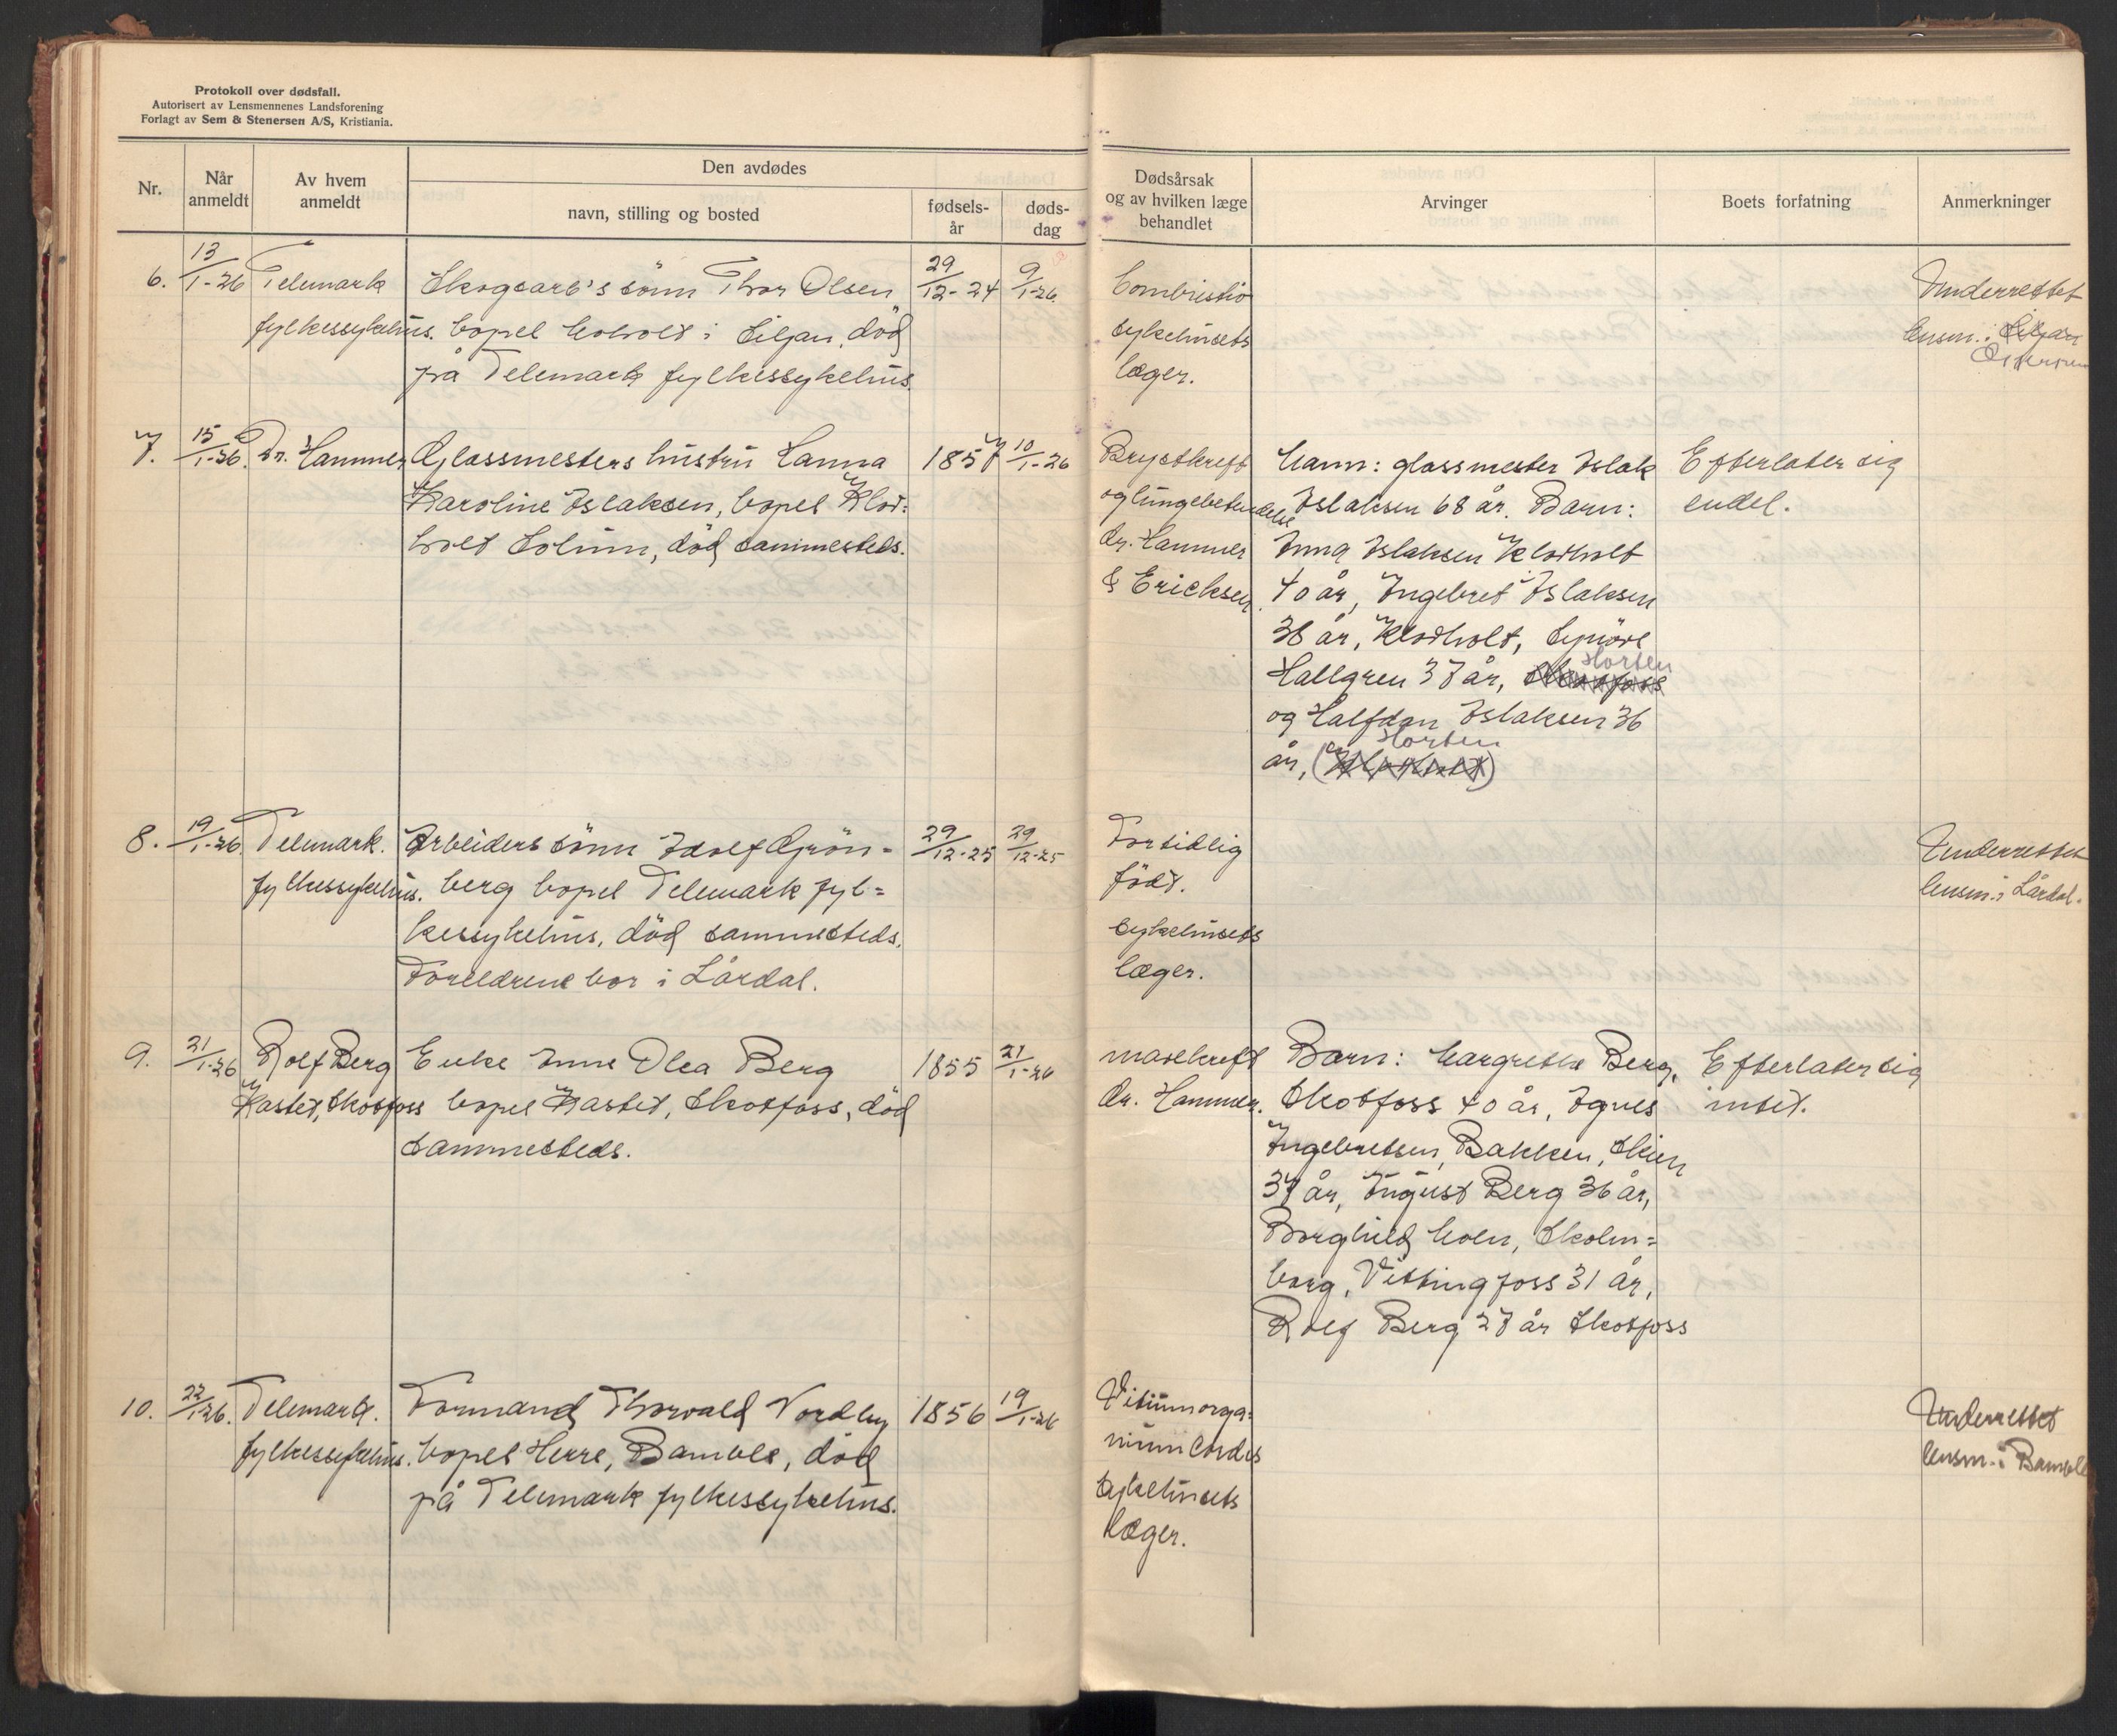 Protokoll over dødsfall.
Autorisert av Lensmennenes Landsforening
Forlagt av Sem & Stenersen A/S, Kristiania.
Nr.
Når anmeldt
Av hvem anmeldt
Den avdødes
navn, stilling og bosted
fødsels-år
døds-dag
Dødsårsak og av hvilken læge behandlet
Arvinger
Boets forfatning
Anmerkninger
6.
13/1-26
Telemark
fylkessykehus.
Skogsarb's sönn Thor Olsen
bopel i Siljan, död
på Telemark fylkessykehus
29/12-24
9/1-26
Combustio
sykehusets
læger.
Underrettet
lensm. i Siljan
7.
15/1-26.
Dr. Hammer
Glassmesters hustru Hanna
Karoline Islaksen, bopel Klov=
holt Solum, död sammesteds.
1857
10/1-26
Brystkreft
og lungebetendelse
dr. Hammer
& Ericksen
Mann: glassmester Islak
Islaksen 68 år. Barn:
Anna Islaksen Klovholt
40 år, Ingebret Islaksen
38 år, Klovholt, Synöve
Hallgren 37 år, Horten
og Halfdan Islaksen 36
år, (Horten)
Efterlater sig
endel.
8.
19/1-26.
Telemark.
fylkessykehus.
Arbeiders sönn Adolf Grön=
berg bopel Telemark fyl=
kessykehus, död sammesteds.
Foreldrene bor i Lårdal.
29/12-25
29/12-25
For tidlig
födt.
sykehusets
læger.
Underrettet
lensm. i Lårdal.
9.
21/1-26
Rolf Berg
Kastet, Skotfoss
Enke Anne Olea Berg
bopel Kastet, Skotfoss, död
sammesteds.
1855
21/1-26
mavekreft
dr. Hammer.
Barn: Margrethe Berg,
Skotfoss 40 år, Agnes
Ingebretsen, Bakken, Skien
37 år, August Berg 36 år,
Borghild Moen, Skolm=
borg, Vittingfoss 31 år,
Rolf Berg 27 år Skotfoss
Efterlater sig
intet.
10.
22/1-26.
Telemark.
fylkessykehus.
Formand Thorvald Nordby
bopel Herre, Bamble, död
på Telemark fylkessykehus.
1856
19/1-26
Vitium orga=
nicum cordis
sykehusets
læger.
Underrettet
lensm. i Bamble